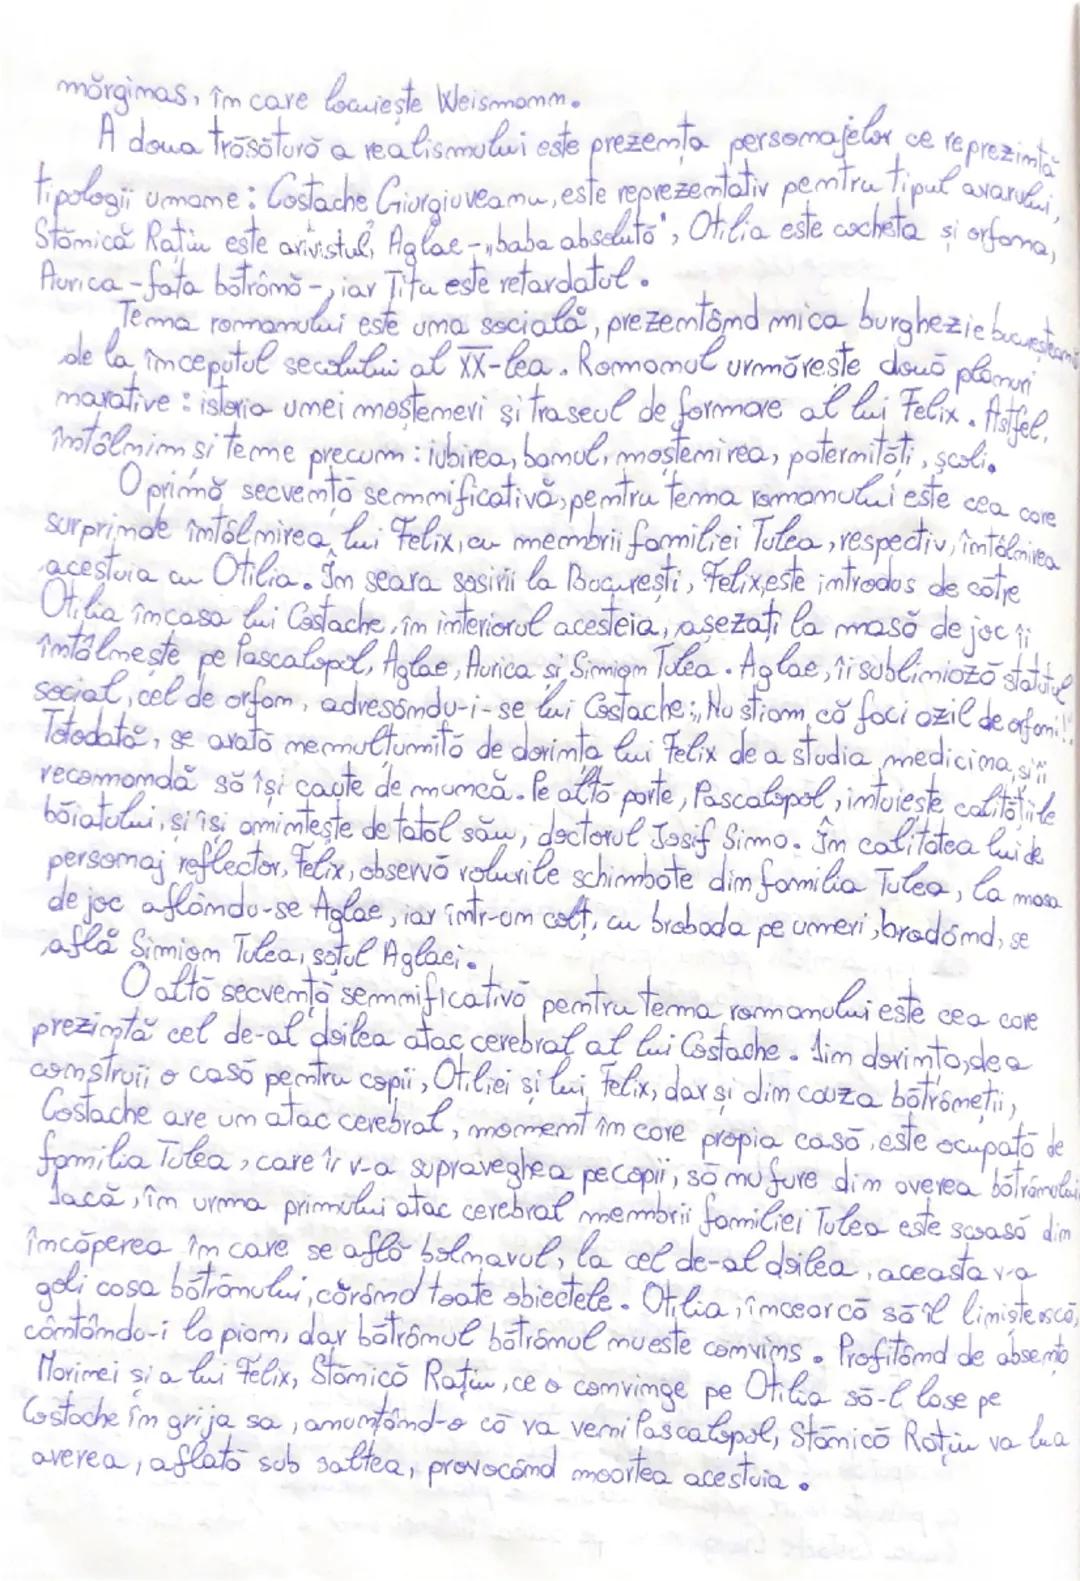 mărginaș, în care locuiește Weismann.
A doua trăsătură a realismului este prezența personajelor ce reprezintă
tipologii umane: Costache Giurgiuveanu, este reprezentativ pentru tipul avarului,
Stănică Rațiu este arivistul, Aglae - „baba absolută", Otilia este cocheta și orfana,
Aurica - fata bătrână -, iar Titu este retardatul.
Tema romanului este una socială, prezentând mica burghezie bucureșteană
de la începutul secolului al XX-lea. Romanul urmărește două planuri
narative: istoria unei moșteniri și traseul de formare al lui Felix. Astfel,
întâlnim și teme precum: iubirea, banul, moștenirea, paternității, școli.
O primă secvență semnificativă, pentru tema romanului este cea care
surprinde întâlnirea lui Felix, cu membrii familiei Tulea, respectiv, întâlnirea
acestuia cu Otilia. În seara sosirii la București, Felix, este introdus de către
Otilia în casa lui Costache, în interiorul acesteia, așezați la masă de joc îi
întâlnește pe Pascalopol, Aglae, Aurica și Simion Tulea. Aglae, îi subliniază statutul
social, cel de orfan, adresându-i-se lui Costache: „Nu știam că faci azil de orfani!"
Totodată, se arată nemulțumită de dorința lui Felix de a studia medicina, și îi
recomandă să își caute de muncă. Pe altă parte, Pascalopol, intuiește calitățiile
băiatului, și își amintește de tatăl său, doctorul Iosif Sima. În calitatea lui de
personaj reflector, Felix, observă rolurile schimbate din familia Tulea, la masa
de joc aflându-se Aglae, iar într-un colț, cu broboda pe umeri, brodând, se
află Simion Tulea, soțul Aglaei.
O altă secvență semnificativă pentru tema romanului este cea care
prezintă cel de-al doilea atac cerebral al lui Costache. Din dorința, de a
construii o casă pentru copii, Otiliei și lui Felix, dar și din cauza bătrâneții,
Costache are un atac cerebral, moment în care propia casă, este ocupată de
familia Tulea, care îi v-a supraveghea pe copii, să nu fure din averea bătrânului.
Dacă, în urma primului atac cerebral membrii familiei Tulea este scoasă din
încăperea în care se află bolnavul, la cel de-al doilea, aceasta v-a
goli casa bătrânului, cărând toate obiectele. Otilia, încearcă să îl liniștească,
cântându-i la pian, dar bătrânul bătrânul nu este convins. Profitând de absența
Marinei și a lui Felix, Stănică Rațiu, ce o convinge pe Otilia să-l lase pe
Costache în grija sa, anunțând-o că va veni Pascalopol, Stănică Rațiu va lua
averea, aflată sub saltea, provocând moartea acestuia.